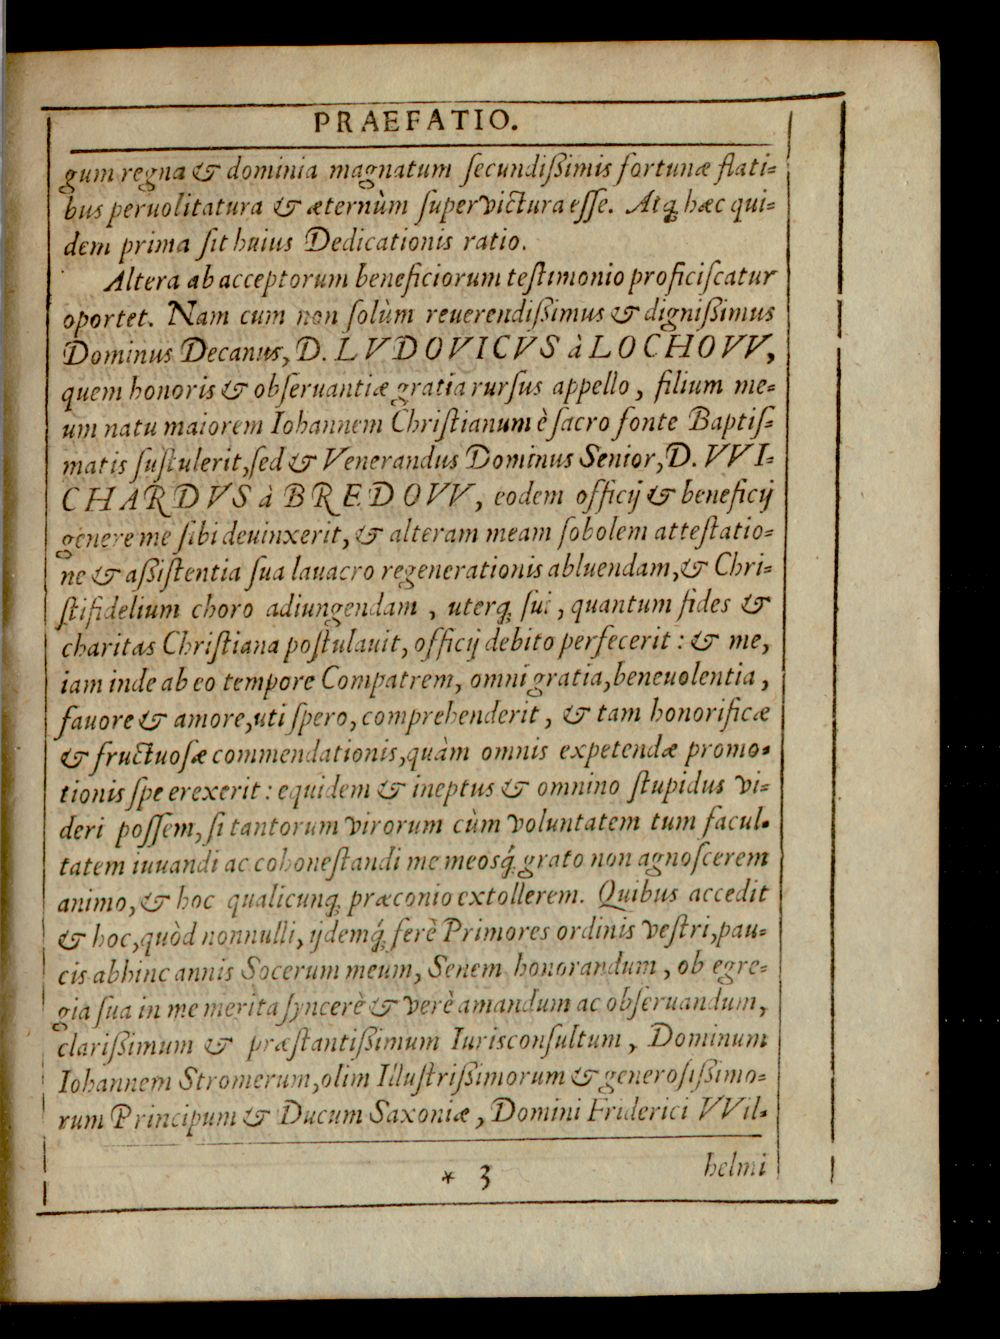 PRAEFATIO.
gum regna & dominia magnatum ſecundißimis fortunæ flati=
bus peruolitatura & æternùm ſupervictura eſſe. Atq́; hæc qui=
dem prima ſit huius Dedicationis ratio.
Altera ab acceptorum beneficiorum teſtimonio proficiſcatur
oportet. Nam cum non ſolùm reuerendißimus & dignißimus
Dominus Decanus, D. LVDOVICVS à LOCHOVV,
quem honoris & obſeruantiæ gratia rurſus appello, filium me=
um natu maiorem Iohannem Chriſtianum è ſacro fonte Baptiſ=
matis ſuſtulerit, ſed & Venerandus Dominus Senior, D. VVI=
CHARDVS à BREDOVV, eodem officij & beneficij
genere me ſibi deuinxerit, & alteram meam ſobolem atteſtatio=
ne & aßiſtentia ſua lauacro regenerationis abluendam, & Chri=
ſtifidelium choro adiungendam, uterq; ſui, quantum fides &
charitas Chriſtiana poſtulauit, officij debito perfecerit: & me,
iam inde ab eo tempore Compatrem, omni gratia, beneuolentia,
fauore & amore, uti ſpero, comprehenderit, & tam honorificæ
& fructuoſæ commendationis, quàm omnis expetendæ promo=
tionis ſpe erexerit: equidem & ineptus & omnino ſtupidus vi=
deri poſſem, ſi tantorum virorum cùm voluntatem tum facul=
tatem iuuandi ac cohoneſtandi me meosq́; grato non agnoſcerem
animo, & hoc qualicunq; præconio extollerem. Quibus accedit
& hoc, quòd nonnulli, ijdemq́; ferè Primores ordinis veſtri, pau=
cis abhinc annis Socerum meum, Senem honorandum, ob egre=
gia ſua in me merita ſyncerè & verè amandum ac obſeruandum,
clarißimum & præſtantißimum Iurisconſultum, Dominum
Iohannem Stromerum, olim Illuſtrißimorum & generoſißimo=
rum Principum & Ducum Saxoniæ, Domini Friderici VVil=
* 3
helmi